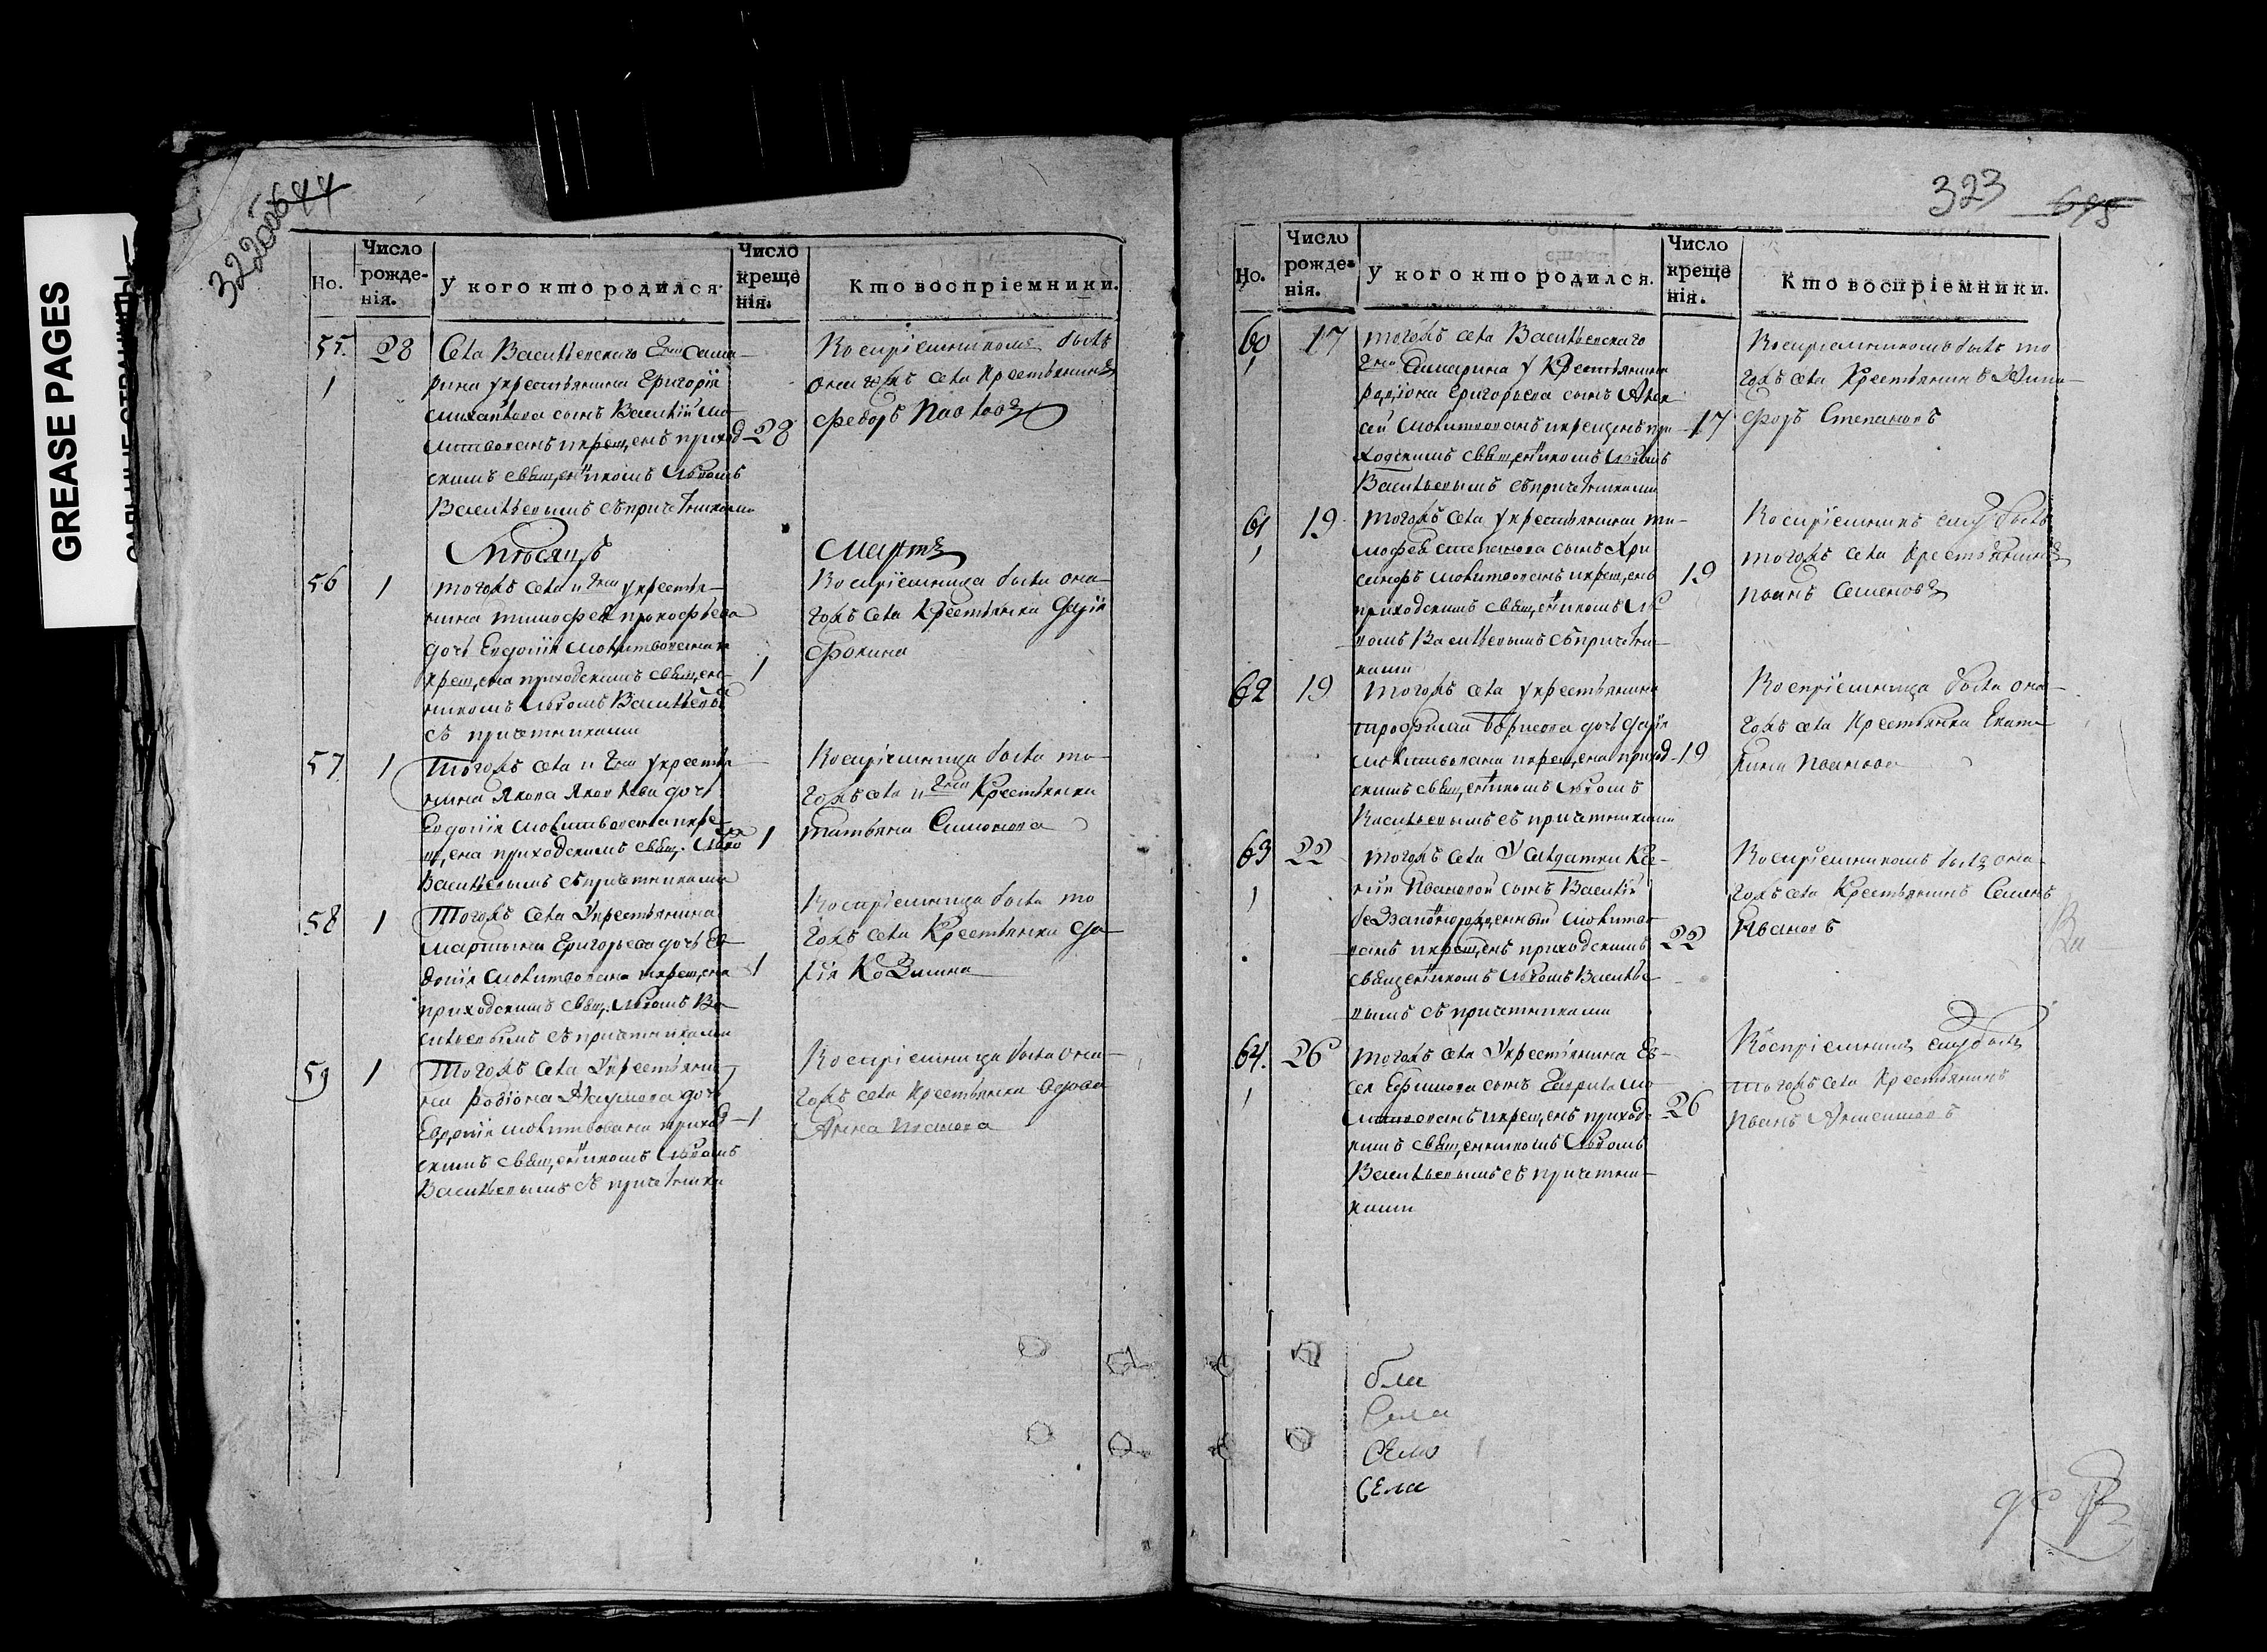 GREASE PAGES
322об
644
Но.
Число рожденія.
У кого кто родился.
Число крещенія.
Кто воспріемники.
55. 28
Села Васильевского Гна Сама-
рина укрестьянина Григорія
Михайлова сынъ Василій мо-
литвованъ икрещенъ приход
скимъ священникомъ Львомъ
Васильевымъ съпричетниками
28
Воспріемникомъ былъ
оногожъ села Крестьянинъ
Федоръ Павловъ
Мѣсяцъ Мартъ
56 1
тогожъ села и Гна укрестья-
нина тимофея прокофьева
дочь Евдокія молитвована и
крещена приходскимъ священ-
никомъ Львомъ Васильевы
съ причетниками
1
Воспріемница была оно-
гожъ села Крестьянка Дарія
Фокина
57 1
Тогожъ села и Гна укрестья
нина Якова Яковлева дочь
Евдокія молитвована икре-
щена приходскимъ свящ. Льво
Васильевымъ съпричетниками
1
Воспріемница была то-
гожъ села и Гна Крестьянка
татьяна Симонова
58 1
Тогожъ села Укрестьянина
мартына Григорьева дочь Ев-
докія молитвована икрещена
приходскимъ свящ. Львомъ Ва-
сильевымъ съпричетниками
1
Воспріемница была то
гожъ села Крестьянка Да-
рія Козмина
59 1
Тогожъ села Укрестьяни-
на родіона Наумова дочь
Евдокія молитвована приход
скимъ священникомъ Львомъ
Васильевымъ съ причетники
1
Воспріемница была оно-
гожъ села Крестьянка вдова
Анна Иванова
323
Но.
Число рожденія.
У кого кто родился.
Число крещенія.
Кто воспріемники.
60 17
тогожъ села Васильевскаго
Гна Самарина у Крестьянина
родіона Григорьева сынъ Алек
сѣй молитвованъ икрещенъ при-
ходскимъ священникомъ Львомъ
Васильевымъ съпричетниками
17
Воспріемникомъ былъ то
гожъ села Крестьянинъ
форъ Степановъ
61 19
тогожъ села укрестьянина ти-
мофея степанова сынъ Хри
санфъ молитвованъ икрещенъ
приходскимъ священникомъ Ль
вомъ Васильевымъ съпричетни-
ками
19
Воспріемникъ ему былъ
тогожъ села Крестьянинъ
иванъ Семеновъ
62 19
Тогожъ села укрестьянина
трофима Борисова дочь Дарія
молитвована икрещена приход
скимъ священникомъ Львомъ
Васильевымъ съ причетниками
19
Воспріемница была оно-
гожъ села Крестьянка Екате-
рина Иванова
63 22
тогожъ села У салдатки
Ивановой сынъ Василій
беззаконорожденный молитво
ванъ икрещенъ приходскимъ
священникомъ Львомъ Василье
вымъ съ причетниками
22
Воспріемникомъ былъ оно-
гожъ села Крестьянинъ Семенъ
Ивановъ
64. 26
тогожъ села Укрестьянина Ев-
сея Ефимова сынъ Гаврила мо
литвованъ икрещенъ приходс
кимъ священникомъ Львомъ
Васильевымъ съ причетни-
ками
26
Воспріемникъ ему былъ
тогожъ села Крестьянинъ
Иванъ
Села
Село
Села